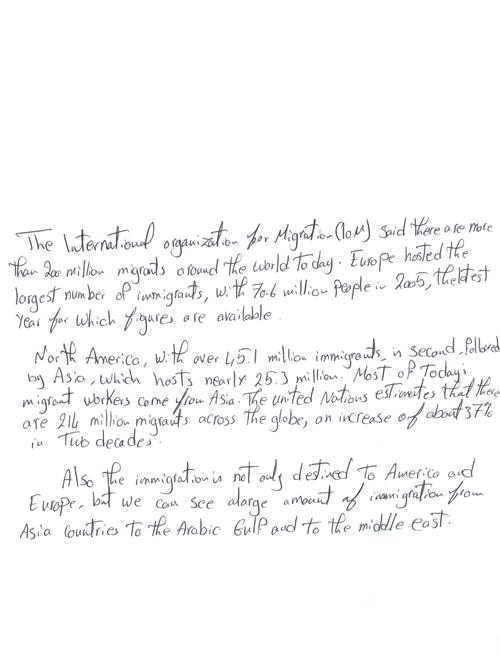 The International organization for Migration (IOM) said there are more
than 200 million migrants around the world today. Europe hosted the
largest number of immigrants, with 70.6 million People in 2005, the latest
Year for which figures are available.
North America, with over 45.1 million immigrants, is second, followed
by Asia, which hosts nearly 25.3 million. Most of Today's
migrant workers come from Asia. The united Nations estimates that there
are 214 million migrants across the globe, an increase of about 37%
in Two decades.
Also the immigration is not only destined to America and
Europe, but we can see alarge amount of immigration from
Asia Countries to the Arabic Gulf and to the middle east.